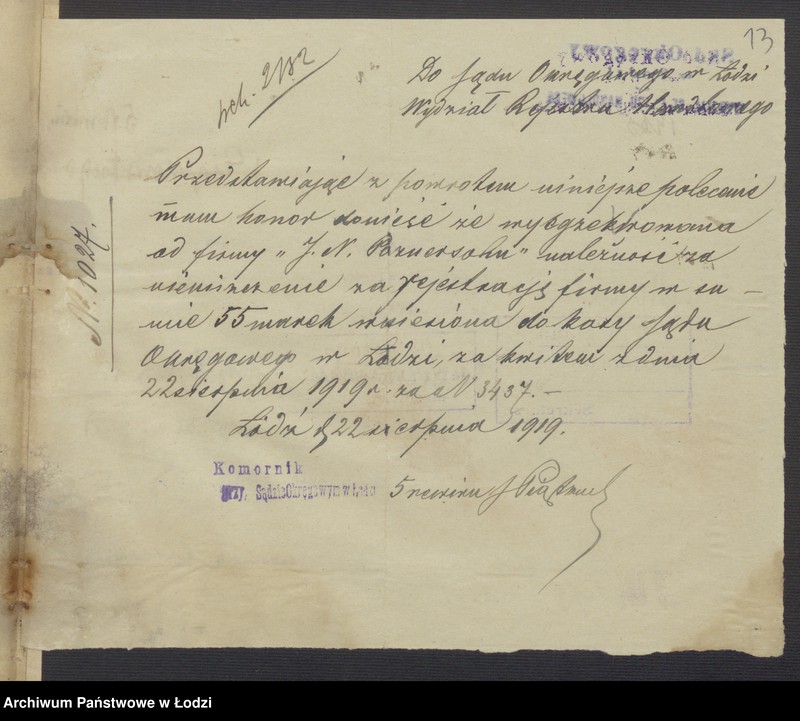 13
2182
Do Sądu Okręgowego w Łodzi
Wydział Rejestru Handlowego
Nr. 1027.
Przedstawiając z powrotem niniejsze polecenie
mam honor donieść że wyegzekwowana
od firmy „J. N. Poznersohn" należność za
nieuiszczenie za rejestrację firmy w su –
mie 55 marek wniesiona do kasy Sądu
Okręgowego w Łodzi, za kwitem z dnia
22 sierpnia 1919 r. za N 3437. –
Łódź d 22 sierpnia 1919.
Komornik
przy Sądzie Okręgowym w Łodzi
Archiwum Państwowe w Łodzi